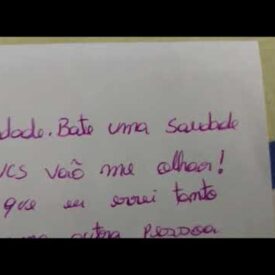 dade. Bate uma saudade
vcs vaõ me olhar!
que eu errei tanto
uma outra pessoa